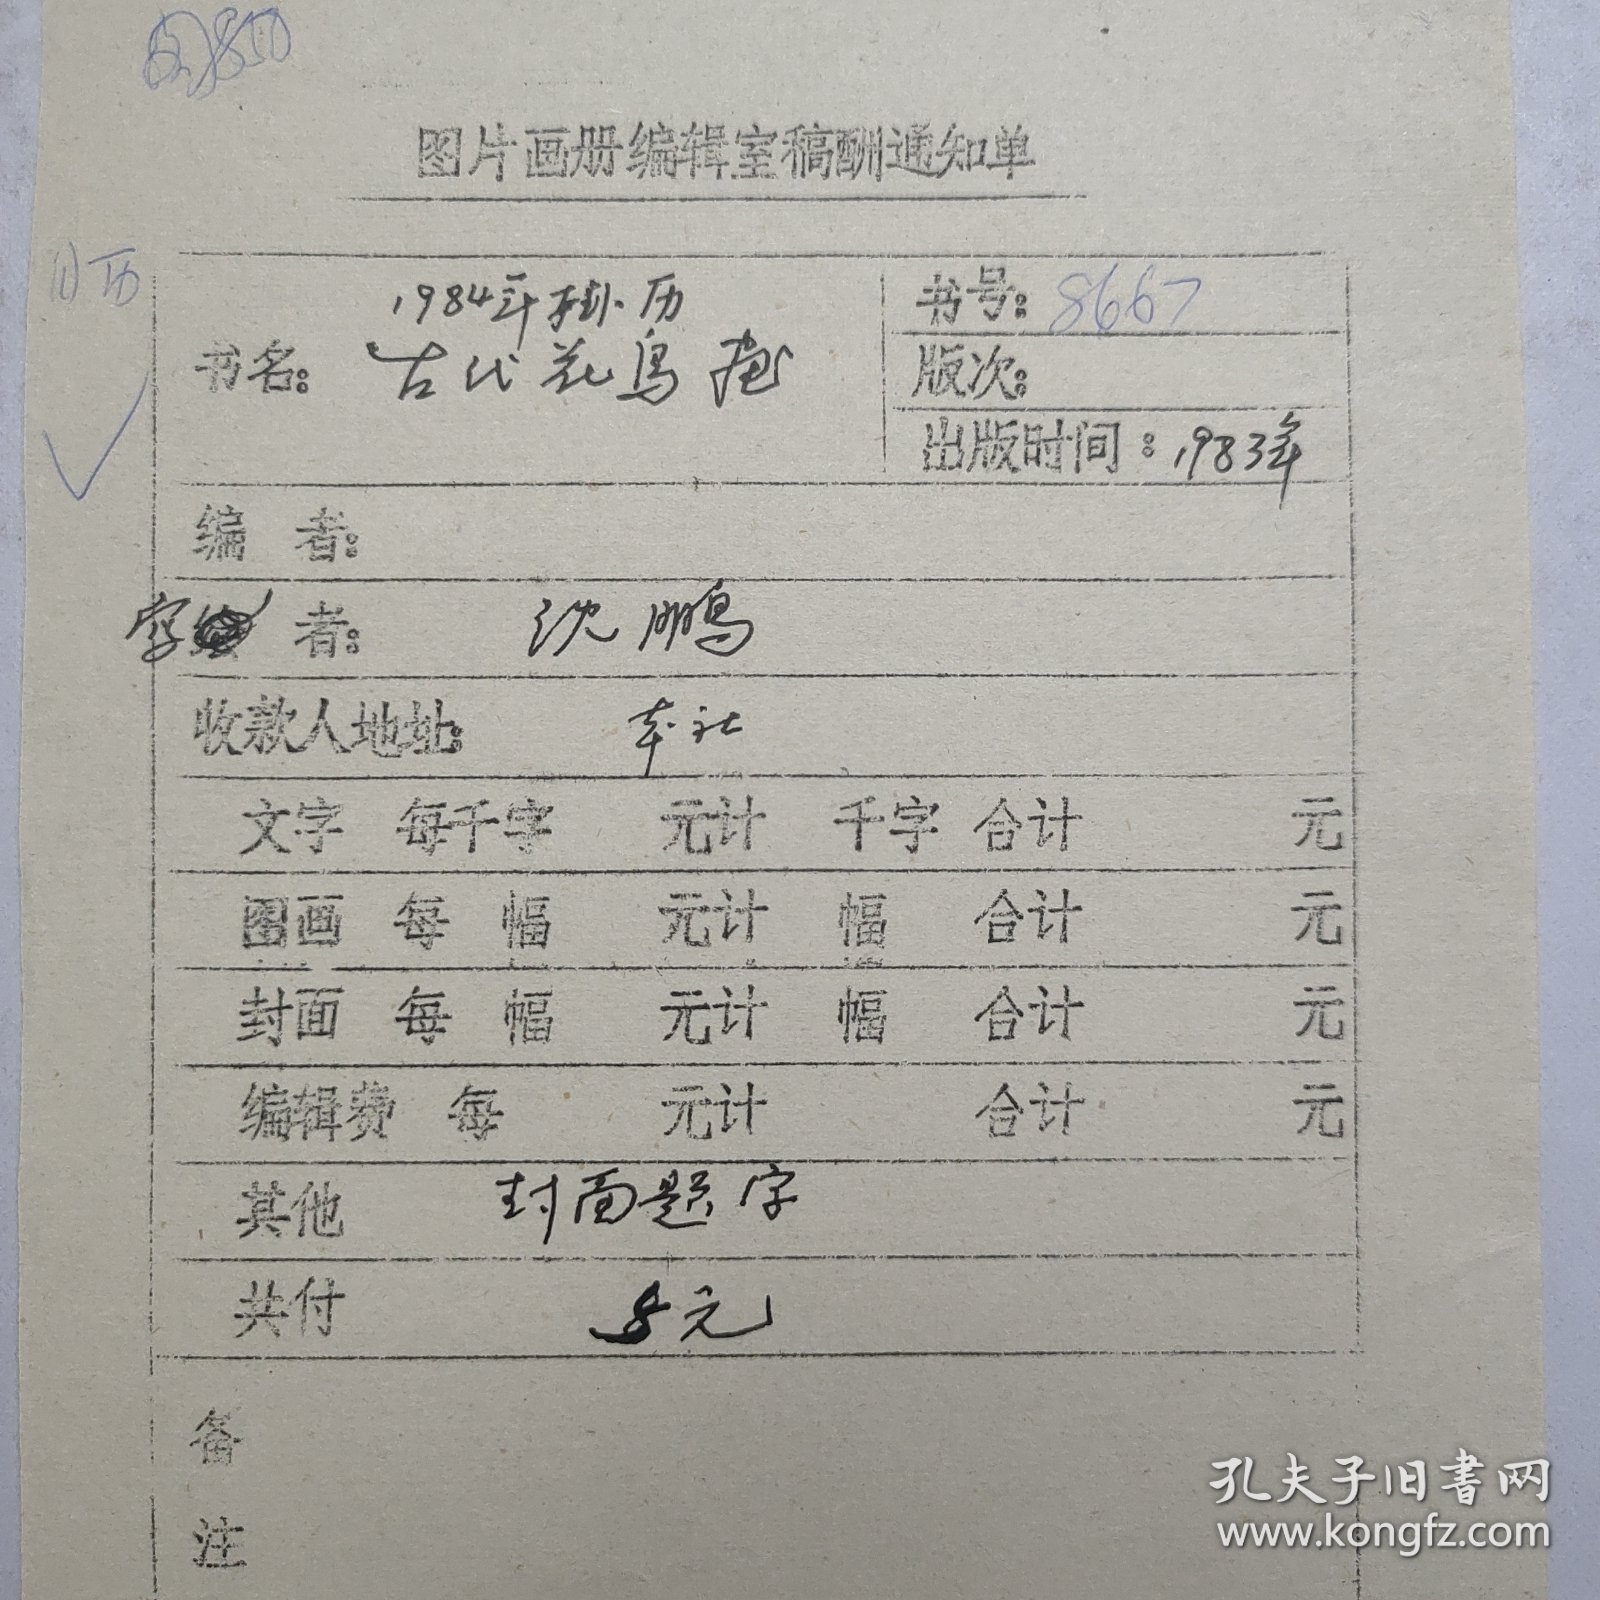 图片画册编辑室稿酬通知单
1984年挂历
书名：古代花鸟画
书号：8667
版次：
出版时间：1983年
编 者：
字 者：沈鹏
收款人地址：本社
文字 每千字 元计 千字 合计 元
图画 每 幅 元计 幅 合计 元
封面 每 幅 元计 幅 合计 元
编辑费 每 元计 合计 元
其他 封面题字
共付 8元
备
注
孔夫子旧书网
www.kongfz.com